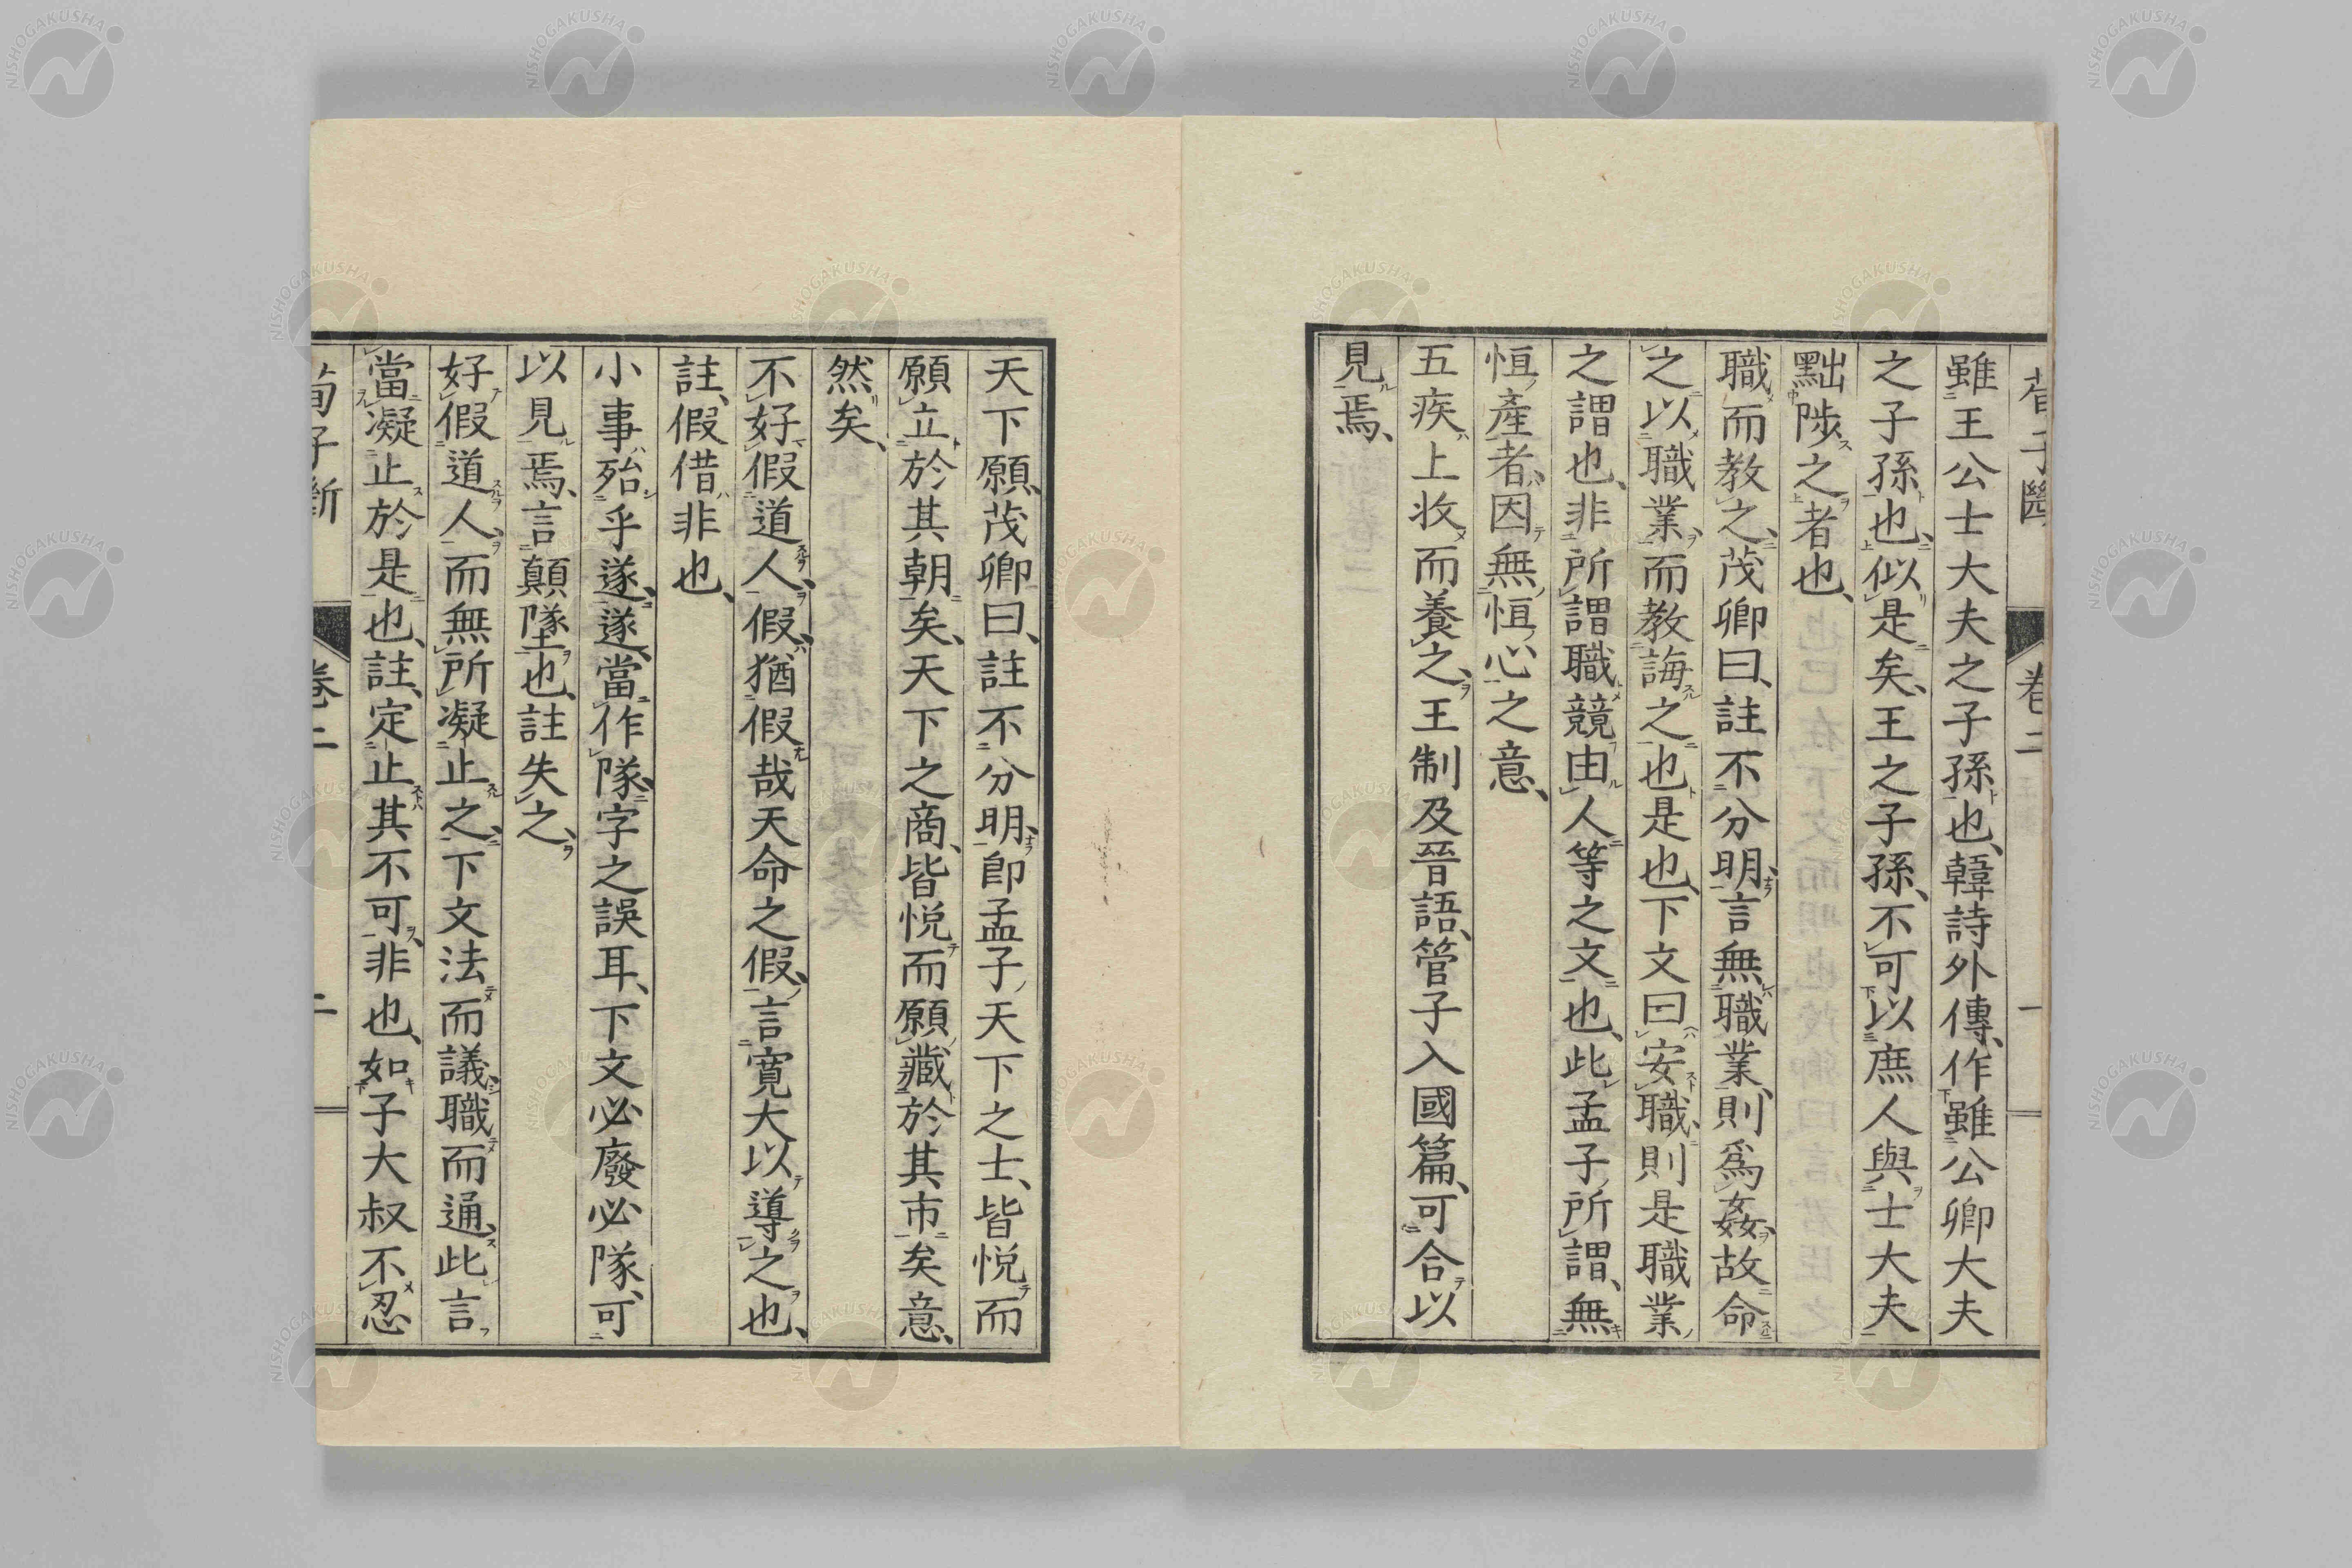 雖王公士大夫之子孫也、韓詩外傳、作雖公卿大夫
之子孫也、似是矣、王之子孫、不可以庶人與士大夫
黜陟之者也、
職而教之、茂卿曰、註不分明、言無職業、則爲姦、故命
之以職業、而教誨之也是也、下文曰、安職、則是職業
之謂也、非所謂職競由人等之文也、此孟子所謂、無
恆產者、因無恆心之意、
五疾上收而養之、王制及晉語、管子入國篇、可合以
見焉、
天下願、茂卿曰、註不分明、卽孟子天下之士、皆悅而
願立於其朝矣、天下之商、皆悅而願藏於其市矣意、
然矣、
不好假道人、假猶假哉天命之假、言寬大以導之也、
註、假借非也、
小事殆乎遂、遂當作隊、字之誤耳、下文必廢必隊、可
以見焉、言顛墜也、註失之、
好假道人、而無所凝止之、下文法而議、職而通、此言
當凝止於是也、註、定止其不可、非也、如子大叔不忍
荀子斷 卷二 二